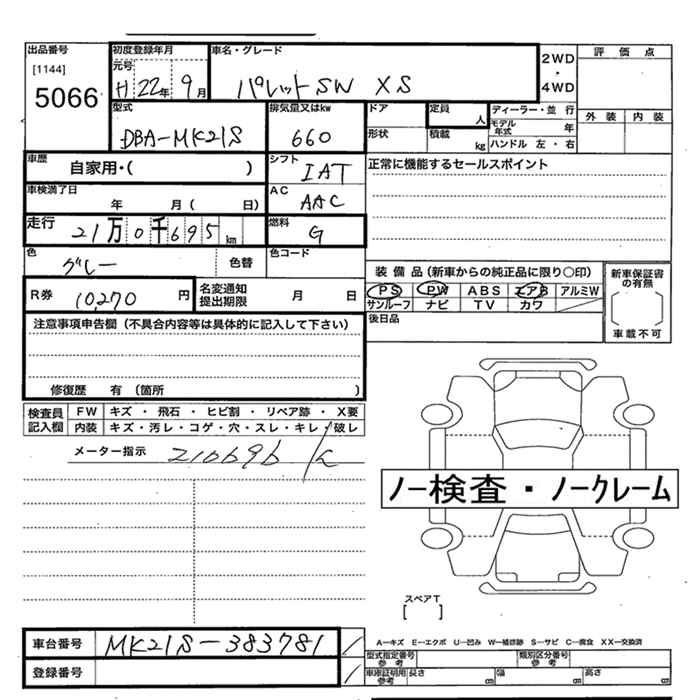 出品番号 初度登録年月 車名・グレード 2WD ・ 4WD 評価点
[1144] 元号
5066 H 22年 9月 パレットSW XS
型式 排気量又はkw ドア 定員 人 ディーラー・並行 外装 内装
DBA-MK21S 660 形状 積載 kg モデル年式 年
ハンドル 左・右
車歴 自家用・( ) シフト IAT 正常に機能するセールスポイント
車検満了日 年 月( 日) AC AAC
走行 21万0千695km 燃料 G
色 グレー 色替 色コード
装備品(新車からの純正品に限り○印) 新車保証書の有無
R券 10,270 円 名変通知提出期限 月 日 PS PW ABS エアB アルミW
サンルーフ ナビ TV カワ 車載不可
注意事項申告欄(不具合内容等は具体的に記入して下さい) 後日品
修復歴 有 (箇所 )
検査員記入欄 FW キズ ・ 飛石 ・ ヒビ割 ・ リペア跡 ・ X要
内装 キズ・汚レ・コゲ・穴・スレ・キレ・破レ
メーター指示 210696
ノー検査・ノークレーム
スペアT
[ ]
車台番号 MK21S-383781
A-キズ E-エクボ U-凹み W-補修跡 S-サビ C-腐食 XX-交換済
型式指定番号 参考 類別区分番号 参考
登録番号 車庫証明用 参考 長さ cm 幅 cm 高さ cm